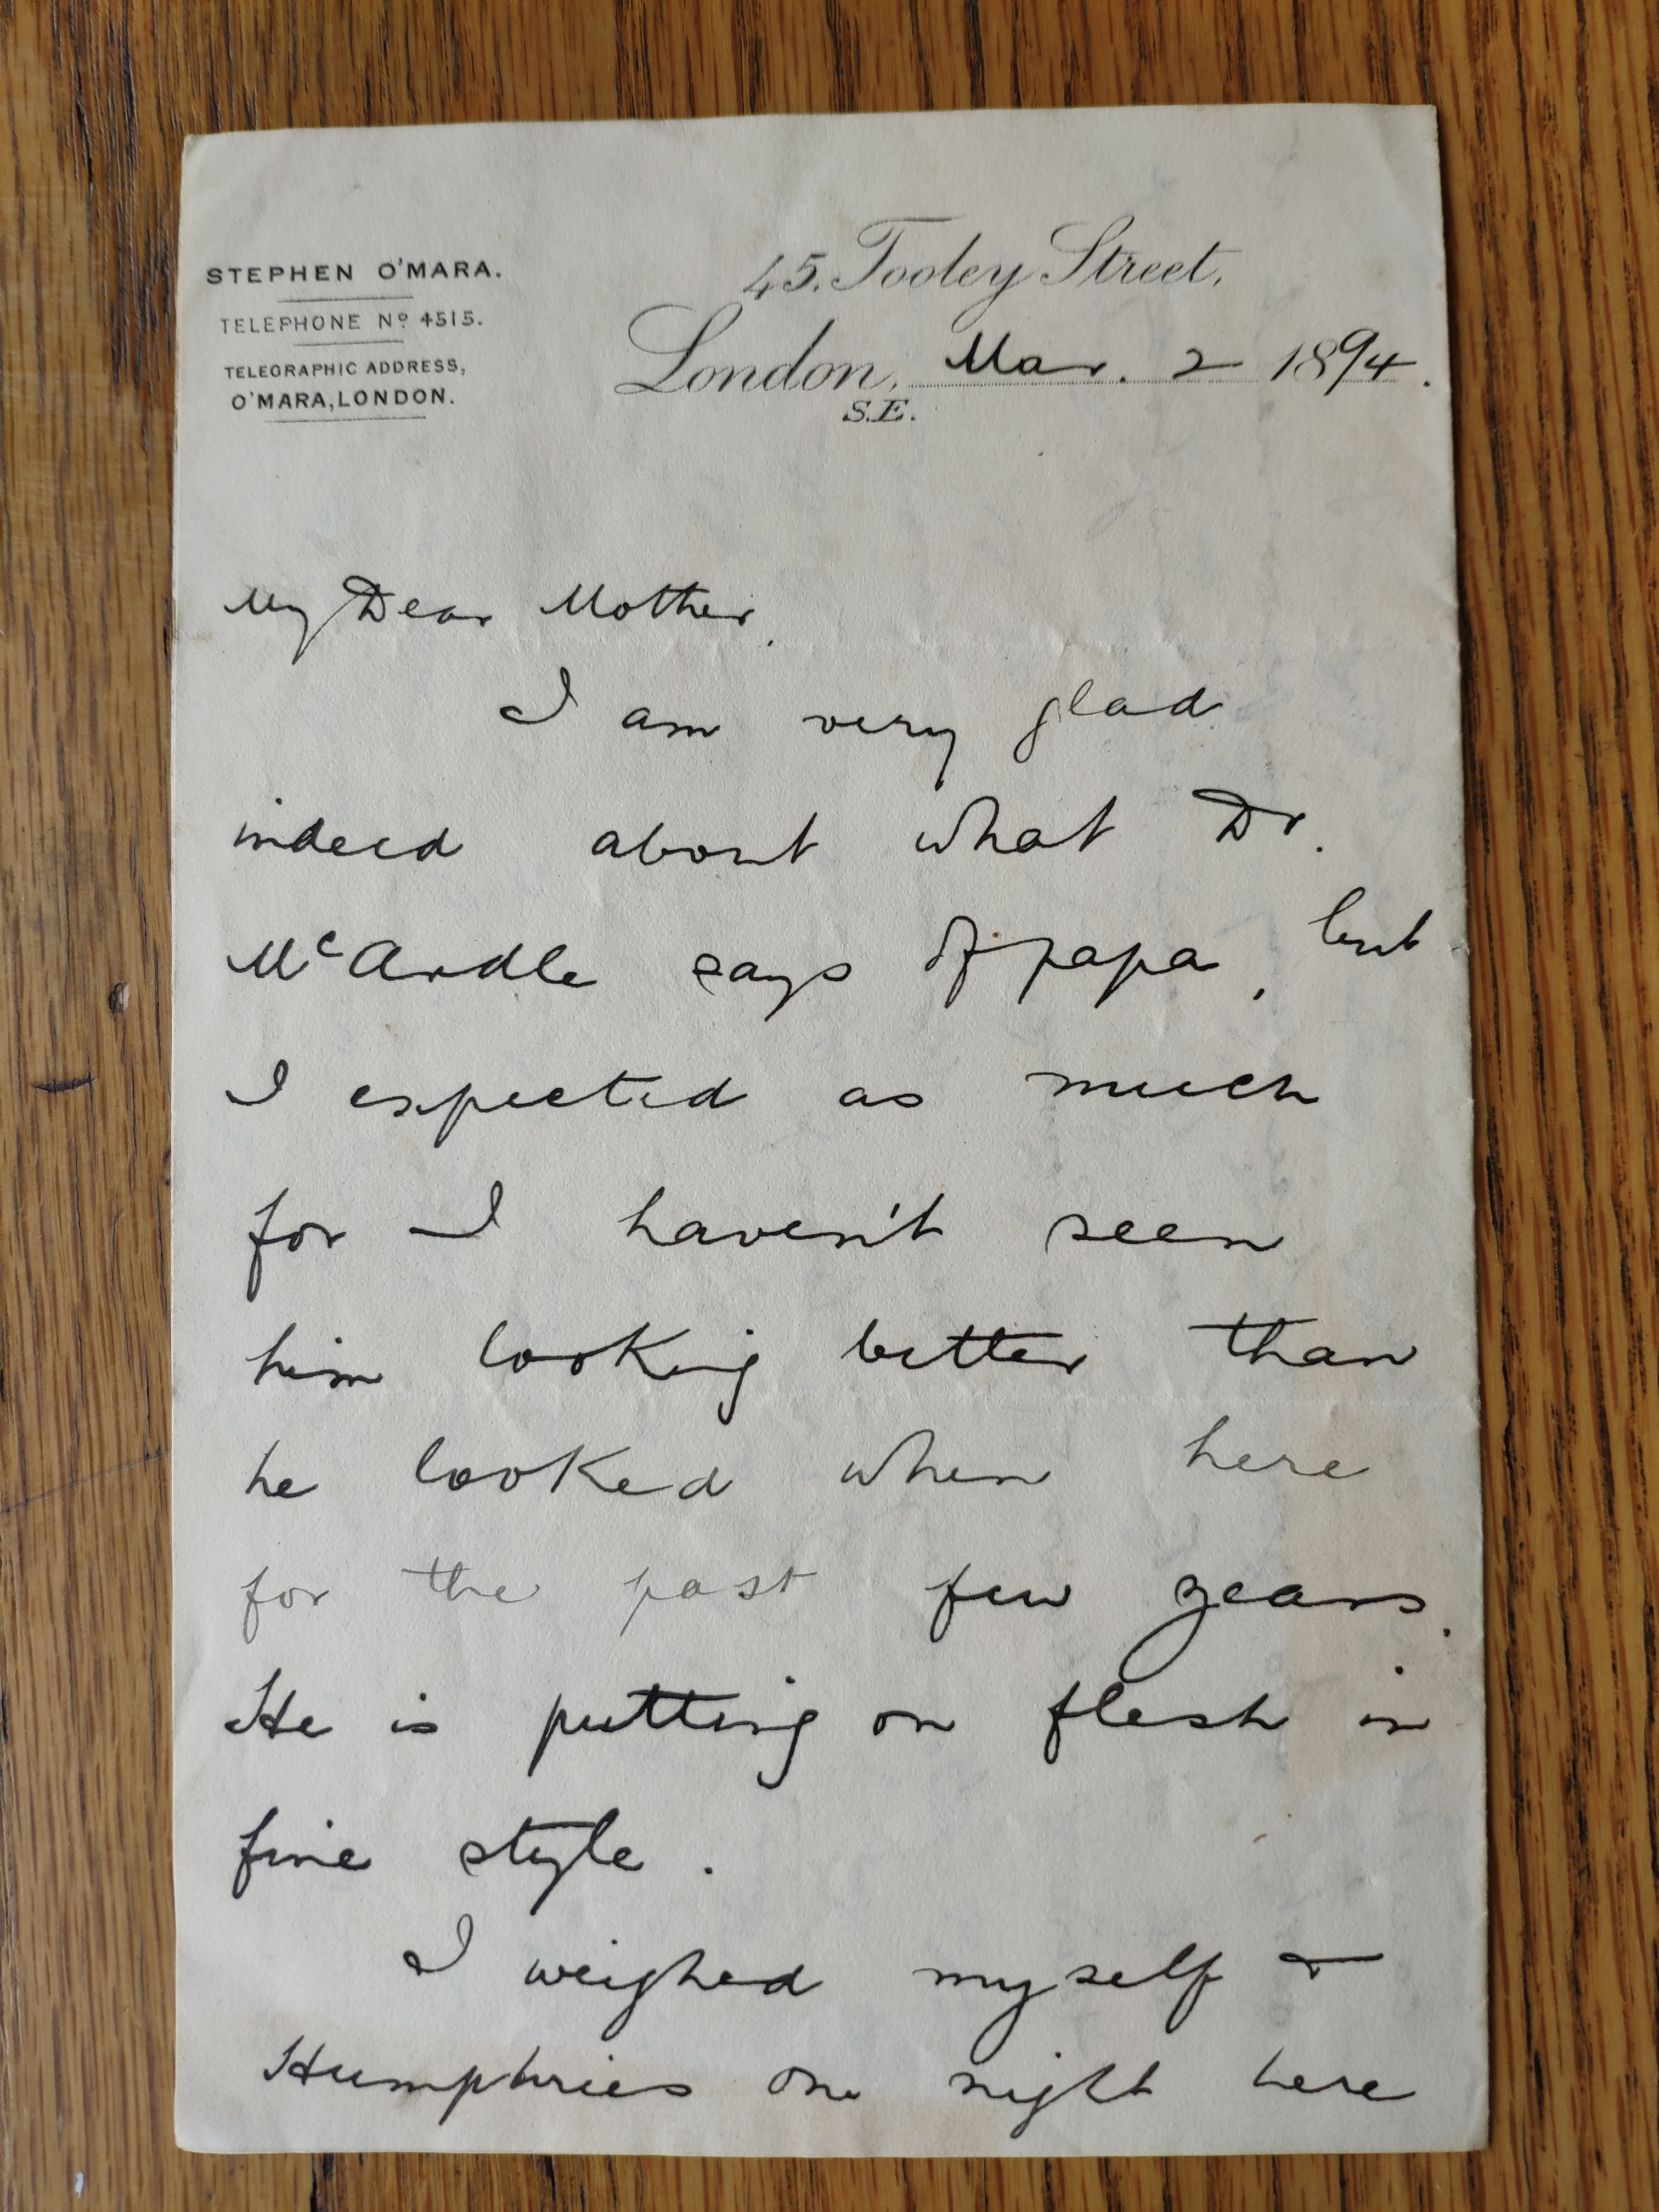 STEPHEN O'MARA.
TELEPHONE Nº 4515.
TELEGRAPHIC ADDRESS,
O'MARA, LONDON.
45. Tooley Street,
London, Mar. 2 1894.
S.E.
My Dear Mother,
I am very glad
indeed about what Dr.
McArdle says of papa, but
I expected as much
for I haven't seen
him looking better than
he looked when here
for the past few years.
He is putting on flesh in
fine style.
I weighed myself &
Humphries one night here